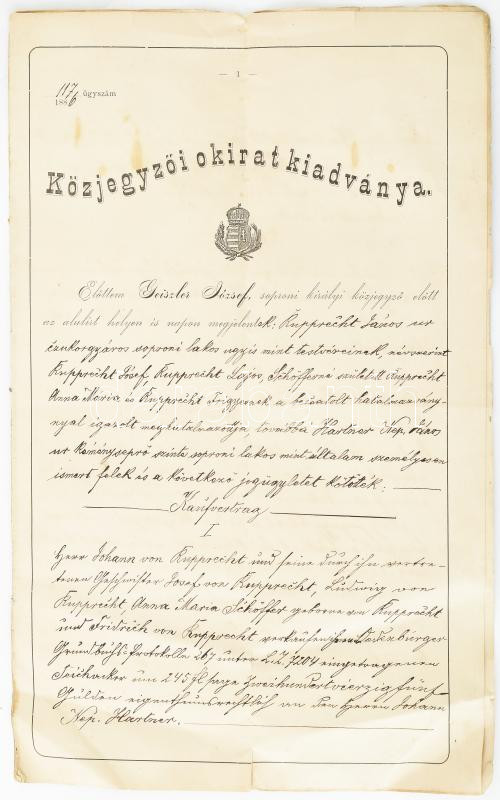 — 1 —
1176
1886 ügyszám
Közjegyzői okirat kiadványa.
Előttem Geiszler József, soproni királyi közjegyző előtt
az alulirt helyen és napon megjelentek: Rupprecht János ur
czukorgyáros soproni lakos ugyis mint testvéreinek, névszerint
Rupprecht József, Rupprecht Lajos, Schöfferné született Rupprecht
Anna Maria és Rupprecht Frigyesnek a becsatolt hatalmazvány-
nyal igazolt meghatalmazottja, továbbá Hartner Nep. János
ur kéményseprő szinte soproni lakos mint általam személyesen
ismert felek és a következő jogügyletet kötötték:
Kaufvertrag
I
Herr Johann von Rupprecht und seine durch ihn vertre-
tenen Geschwister Josef von Rupprecht, Ludwig von
Rupprecht, Anna Maria Schöffer geborne von Rupprecht
und Fridrich von Rupprecht verkaufen ihren Oedenburger
Grundbuchs-Protokolle 267 unter L.Z. 7204 eingetragenen
Teichacker um 245 fl sage zweihundertvierzigfünf
Gulden eigenthumsrechtlich an den Herrn Johann
Nep. Hartner.